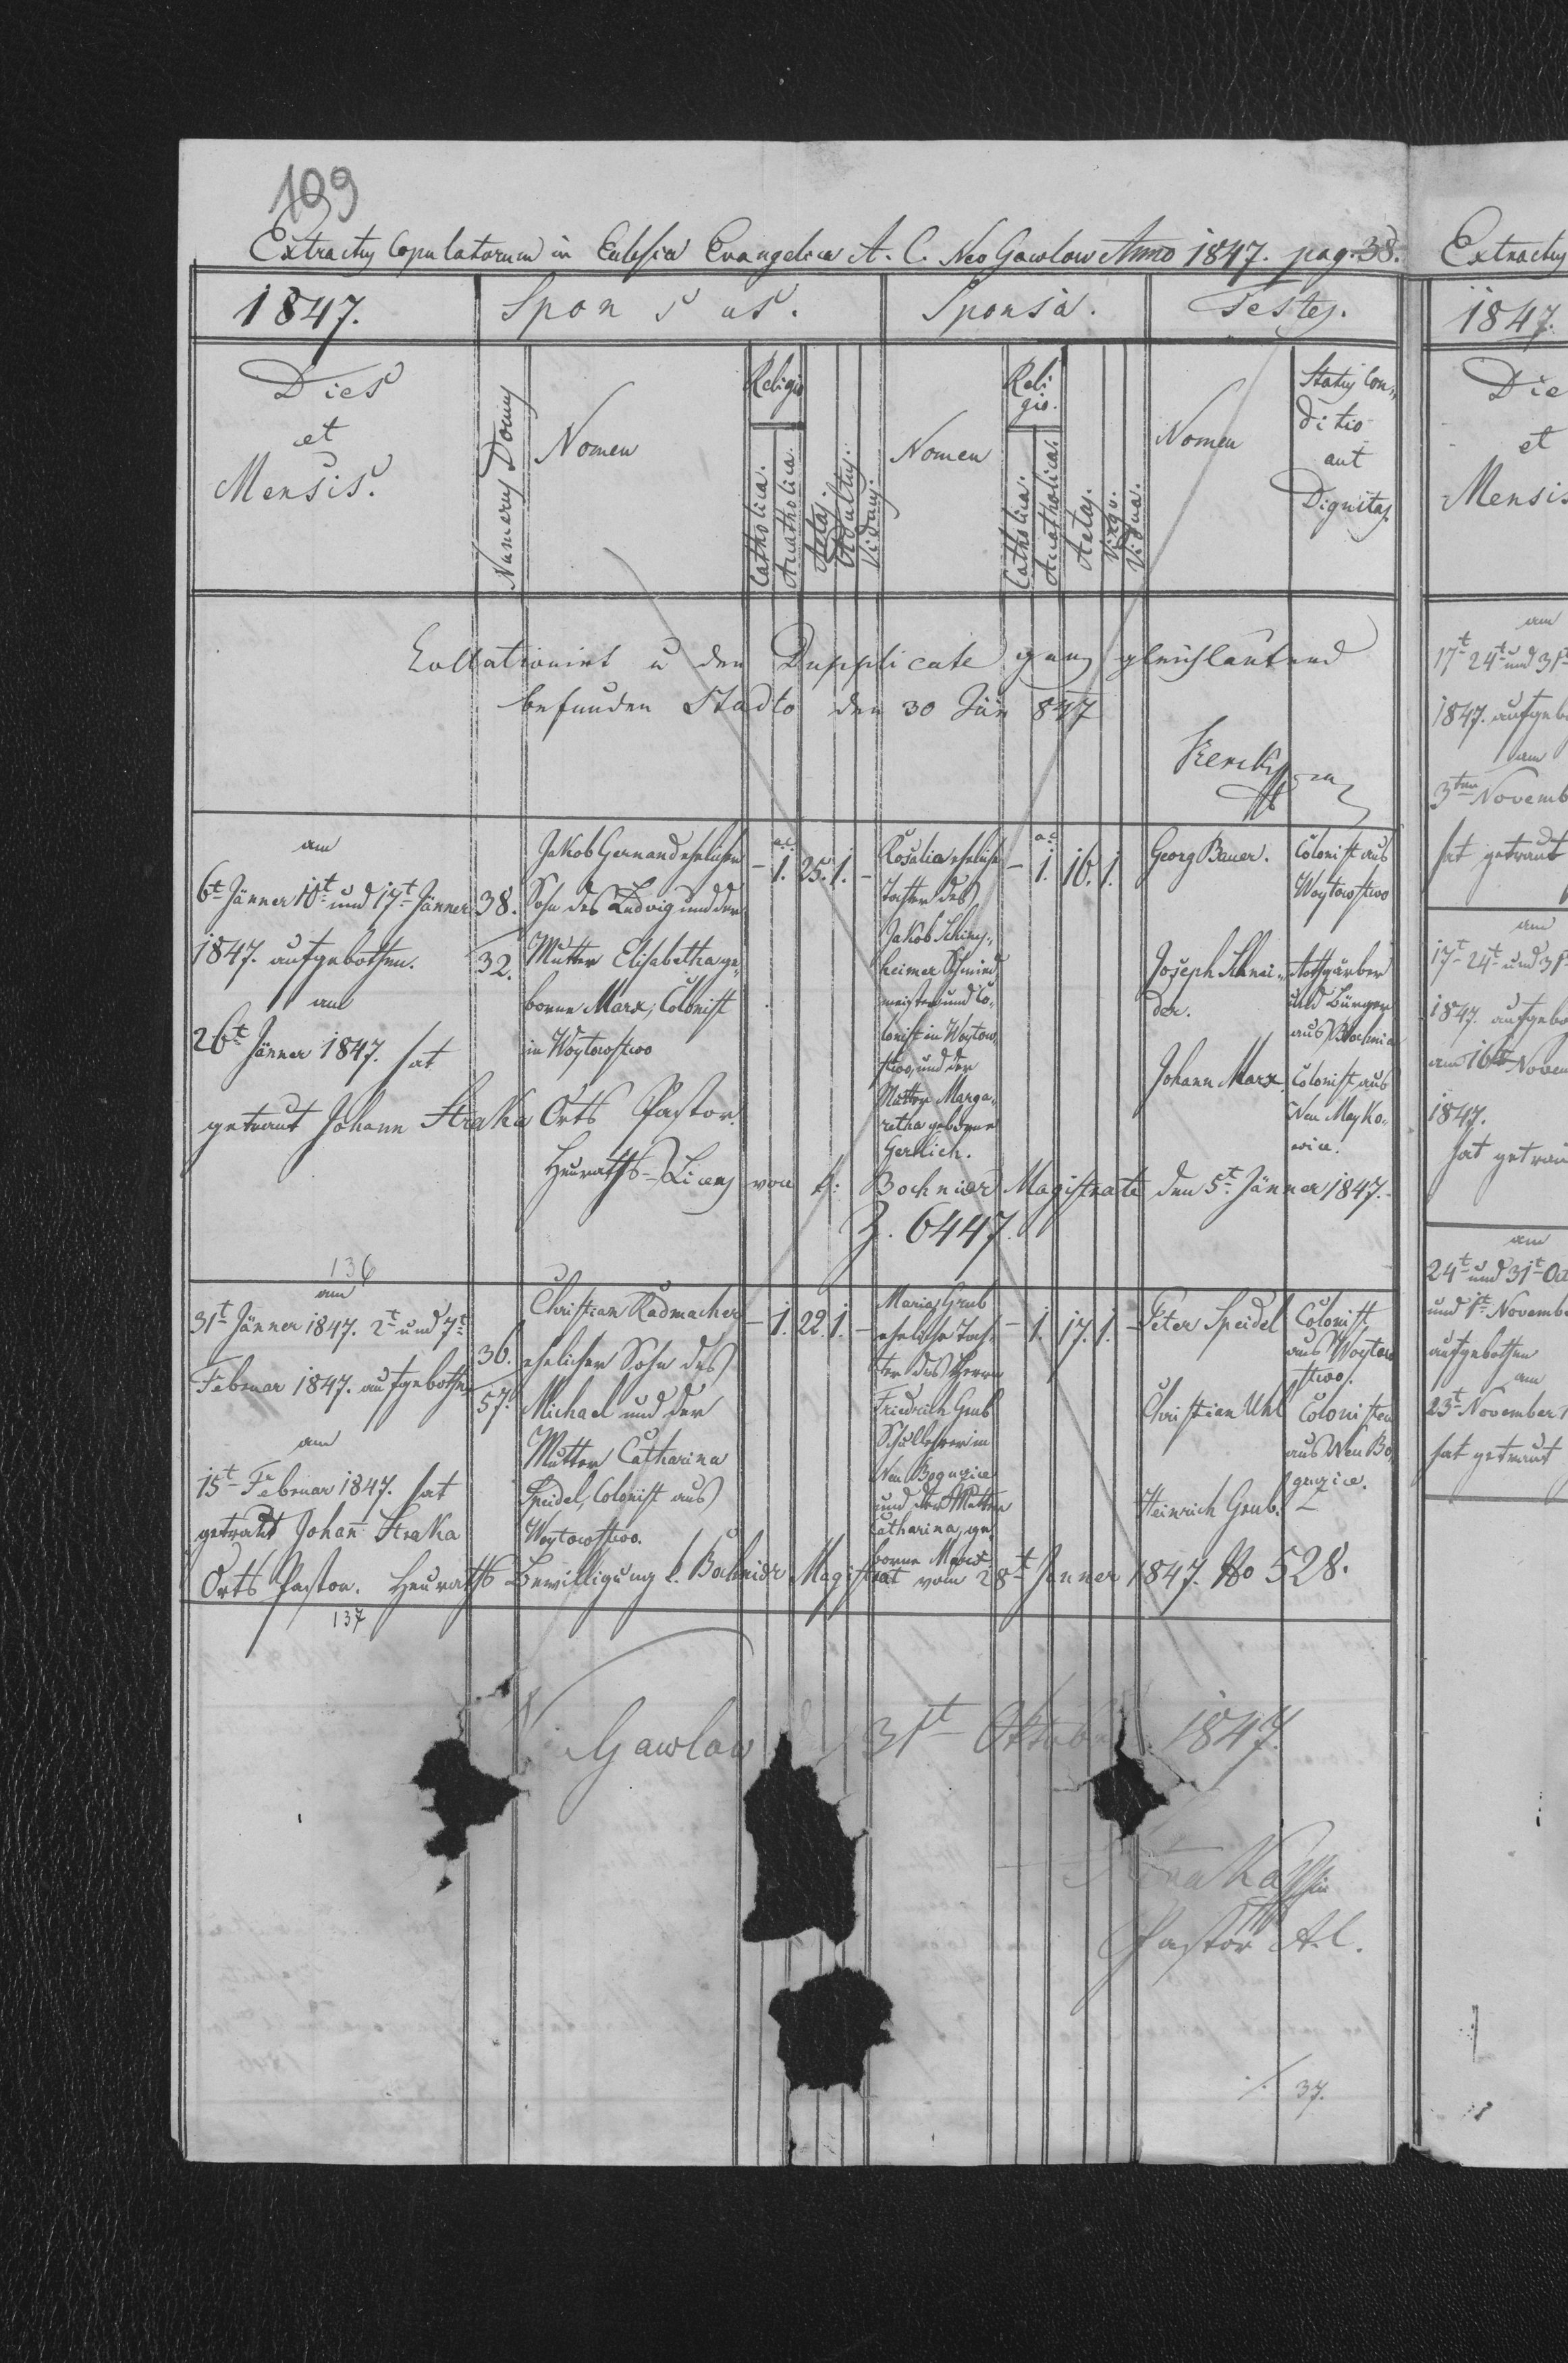 199
Extractus Copulatorum in Eclesia Evangelica A. C. Neo Gawlow Anno 1847. pag. 38.
1847.
Sponsus.
Sponsa.
Testes.
Dies
et
Mensis.
Numerus Domus
Nomen
Religio
Catholica.
Acatholica.
Aetas.
Adultus.
Viduus.
Nomen
Reli
gio.
Catholica.
Acatholica.
Aetas.
Virgo.
Vidua.
Nomen
Status Con„
ditio
aut
Dignitas.
Collationirt u den Dupplicate ganz gleichlautend
befunden Stadto den 30 847
am
6t Jänner 10t und 17t Jänner
1847. aufgebothen.
am
26t Jänner 1847. hat
getraut Johann Straka Orts Pastor.
38.
32.
Jakob Gernand ehelicher
Sohn des Ludwig und der
Mutter Elisabetha ge„
borne Marx, Colonist
in Woytowstwo
- 1. 25. 1. -
Rosalia eheliche
Tochter des
Jakob
heimer Schmied
meister und Co„
lonist in Woytow„
stwo, und der
Mutter Marga„
retha geborne
Gerlich.
- 1. 16. 1.
Georg Bauer.
Colonist aus
Woytowstwo
Joseph Schnei„
der.
Rothgärber
und Bürger
aus Bochnia
Johann Marx
Colonist aus
Neu Mayko„
wice.
Heuraths-Licenz von k: Bochnier Magistrate den 5t Jänner 1847.
Z. 6447.
136
am
31t Jänner 1847. 2t und 7t
Februar 1847. aufgebothen
am
15t Februar 1847. hat
getraut Johann Straka
Orts Pastor. Heuraths Bewilligung k. Bochnier Magistrat vom 28t Jänner 1847. No 528.
36.
57.
Christian Radmacher
ehelicher Sohn des
Michael und der
Mutter Catharina
Speidel, Colonist aus
Woytowstwo.
- 1. 22. 1. -
Maria Grub
eheliche Toch„
ter des Herrn
Friedrich Grub
Schullehrer in
Neu Bogucice
und der Mutter
Catharina, ge
borne
- 1. 17. 1. -
Peter Speidel
Colonist
aus Woytow
stwo.
Christian Uhl
Colonisten
aus Neu Bo„
gucice.
Heinrich Grub.
137
Gawlow 31st Oktober 1847.
Straka
Pastor A. C.
37.
Extractus
1847.
Die
et
Mensis
am
17t 24t und 31t
1847. aufgebo
am
3ten Novemb
hat getraut
am
17t 24t und 31t
1847. aufgebo
am 16ten Novem
1847.
hat getrau
am
24t und 31t Oct
und 1t Novembe
aufgebothen
am
23t November 1
hat getraut